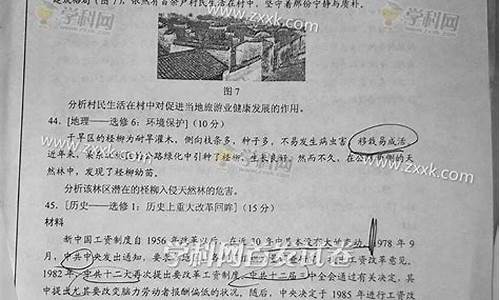 学科网 www.zxxk.com 学科网
定格局（图7），依然有百余户村民生活在村中，坚守着那份宁静与质朴。
www.zxxk.com
图7
分析村民生活在村中对促进当地旅游业健康发展的作用。
44．[地理——选修6：环境保护]（10分）
干旱区的柽柳为耐旱灌木，侧向枝条多，种子多，不易发生病虫害，移栽易成活。
近年来，公路绿化中引种了柽柳，生长良好。然而不久，在公路
然林中，发现了柽柳幼苗。
分析该林区潜在的柽柳入侵天然林的危害。
45．[历史——选修1：历史上重大改革回眸]（15分）
材料
新中国工资制度自1956年改革以后，在近20年中基本没有大的变动。1978年9
月，中共中央发出通知，要
工资改革意见。
1982年，中共十二大再次提出要改革工资制度，中共十二届三中全会通过有关决定，其
中提出尤其要改变脑力劳动者报酬偏低的状况。随后，中央决定于1985年进行工资改
学科网首发试卷
www.zxxk.com